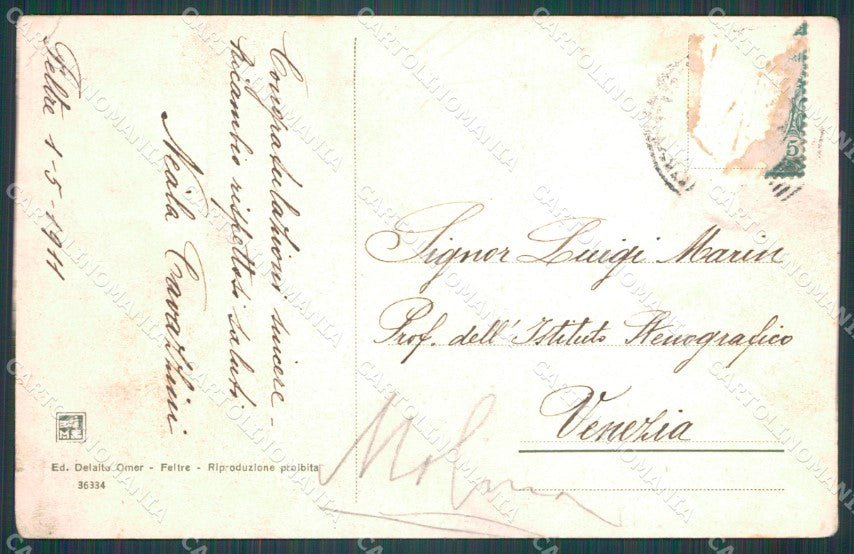 Feltre 1-5-1911
Congratulazioni sincere -
Ricambio rispettosi saluti
Neila Cavazzini
Signor Luigi Marin
Prof. dell' Istituto Stenografico
Venezia
5
Ed. Delaito Omer - Feltre - Riproduzione proibita
36334
CARTOLINOMANIA